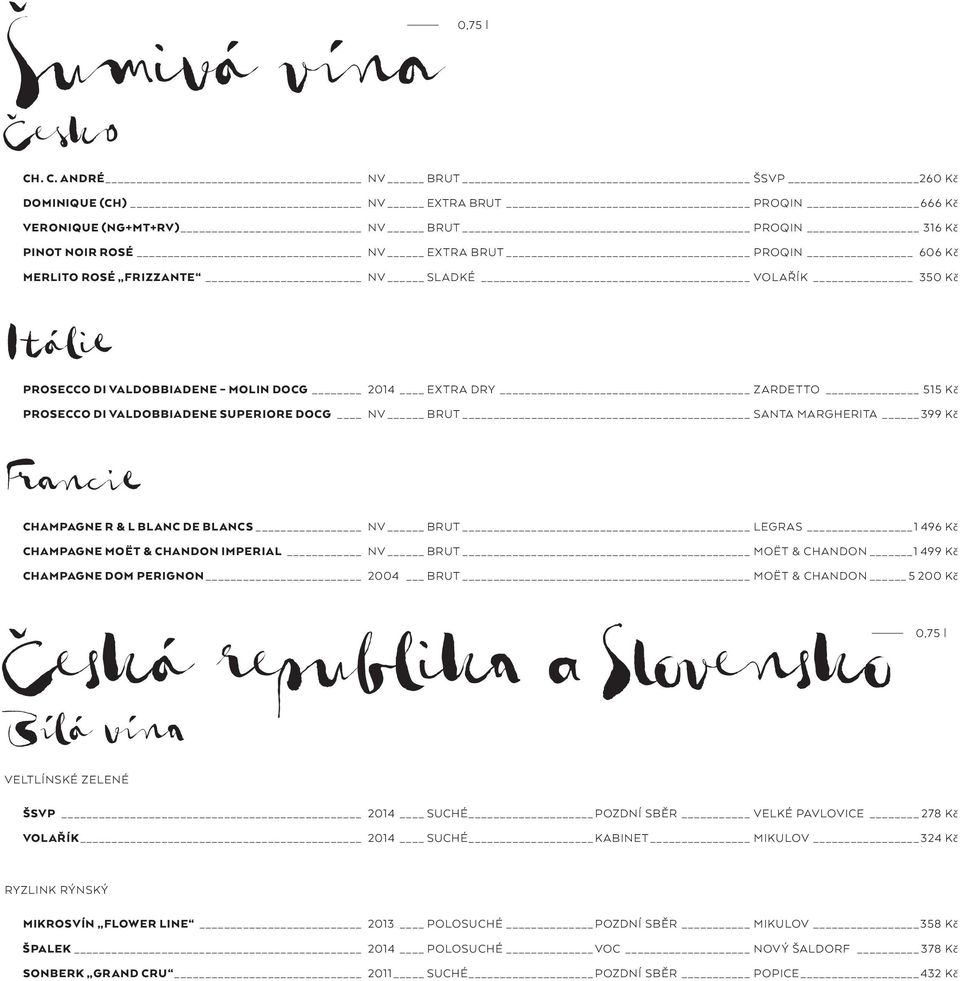 0,75 l
Šumivá vína
Česko
CH. C. ANDRÉ NV BRUT ŠSVP 260 Kč
DOMINIQUE (CH) NV EXTRA BRUT PROQIN 666 Kč
VERONIQUE (NG+MT+RV) NV BRUT PROQIN 316 Kč
PINOT NOIR ROSÉ NV EXTRA BRUT PROQIN 606 Kč
MERLITO ROSÉ „FRIZZANTE“ NV SLADKÉ VOLAŘÍK 350 Kč
Itálie
PROSECCO DI VALDOBBIADENE – MOLIN DOCG 2014 EXTRA DRY ZARDETTO 515 Kč
PROSECCO DI VALDOBBIADENE SUPERIORE DOCG NV BRUT SANTA MARGHERITA 399 Kč
Francie
CHAMPAGNE R & L BLANC DE BLANCS NV BRUT LEGRAS 1 496 Kč
CHAMPAGNE MOËT & CHANDON IMPERIAL NV BRUT MOËT & CHANDON 1 499 Kč
CHAMPAGNE DOM PERIGNON 2004 BRUT MOËT & CHANDON 5 200 Kč
0,75 l
Česká republika a Slovensko
Bílá vína
VELTLÍNSKÉ ZELENÉ
ŠSVP 2014 SUCHÉ POZDNÍ SBĚR VELKÉ PAVLOVICE 278 Kč
VOLAŘÍK 2014 SUCHÉ KABINET MIKULOV 324 Kč
RYZLINK RÝNSKÝ
MIKROSVÍN „FLOWER LINE“ 2013 POLOSUCHÉ POZDNÍ SBĚR MIKULOV 358 Kč
ŠPALEK 2014 POLOSUCHÉ VOC NOVÝ ŠALDORF 378 Kč
SONBERK „GRAND CRU“ 2011 SUCHÉ POZDNÍ SBĚR POPICE 432 Kč